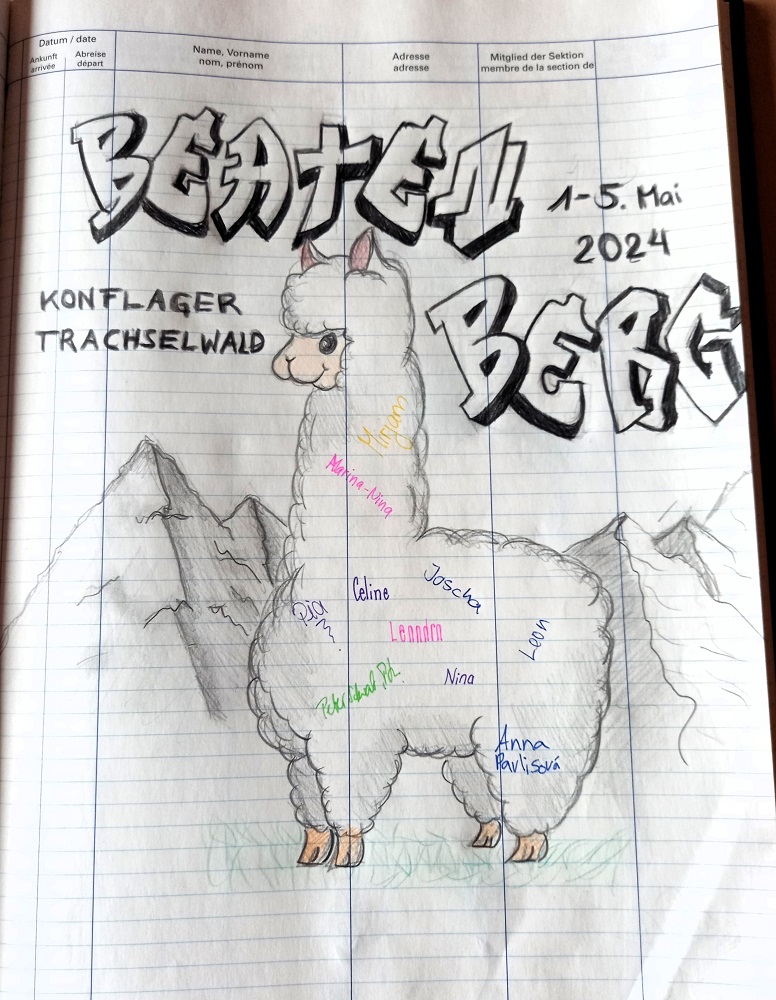 Datum / date
Ankunft
arrivée
Abreise
départ
Name, Vorname
nom, prénom
Adresse
adresse
Mitglied der Sektion
membre de la section de
BEATEN
1-5. Mai
2024
BERG
KONFLAGER
TRACHSELWALD
Mirjam
Marina-Nina
Joscha
Celine
Pia
Leandra
Leon
Nina
Peter
Anna
Pavlisová